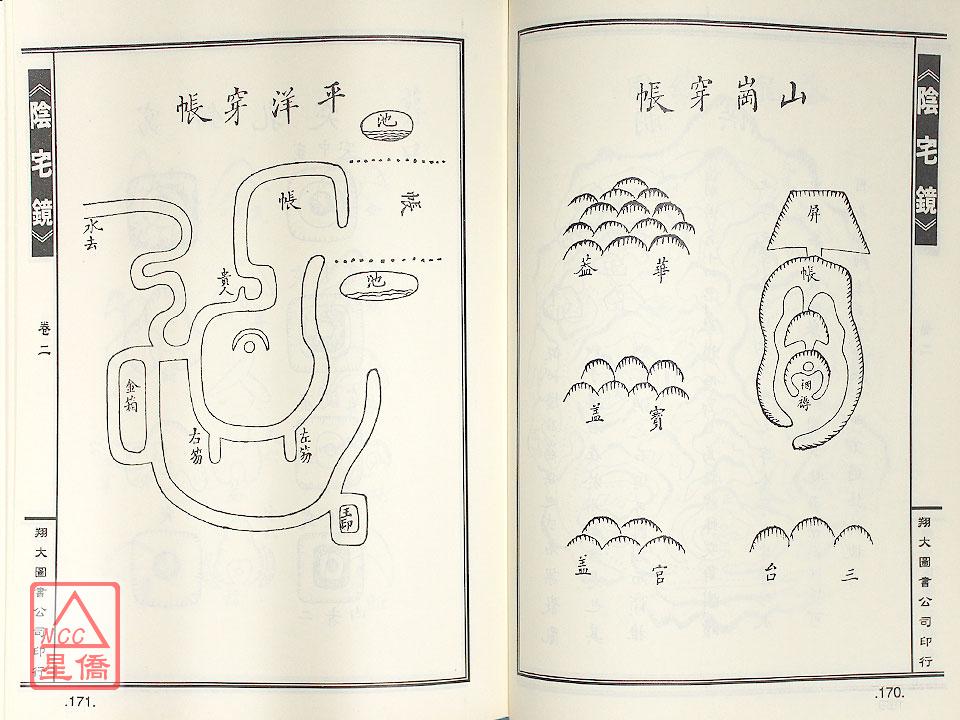 《陰宅鏡》
山崗穿帳
華蓋
寶蓋
官蓋
三台
屏
帳
翔大圖書公司印行
.170.
《陰宅鏡》
卷二
平洋穿帳
池
帳
帳
池
水去
貴人
金箱
右笏
左笏
玉印
翔大圖書公司印行
.171.
NCC
星僑